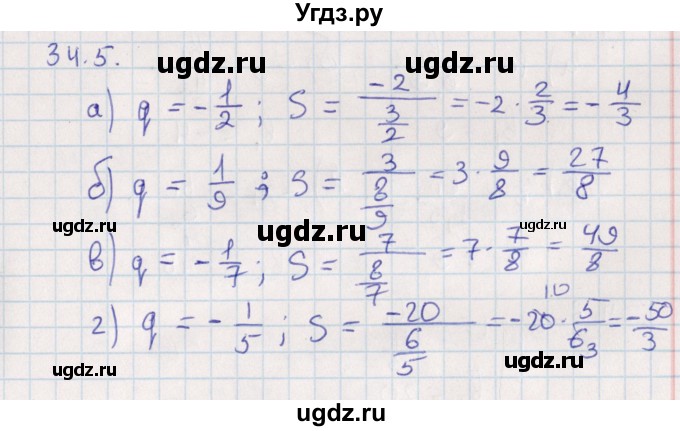 Угдз.ру
34.5.
ugdz.ru ugdz.ru ugdz.ru
а) q = -1/2 ; S = -2/(3/2) = -2 · 2/3 = -4/3
б) q = 1/9 ; S = 3/(8/9) = 3 · 9/8 = 27/8
ugdz.ru ugdz.ru ugdz.ru
в) q = -1/7 ; S = 7/(8/7) = 7 · 7/8 = 49/8
г) q = -1/5 ; S = -20/(6/5) = -20 10 · 5/6 3 = -50/3
ugdz.ru ugdz.ru ugdz.ru
ugdz.ru